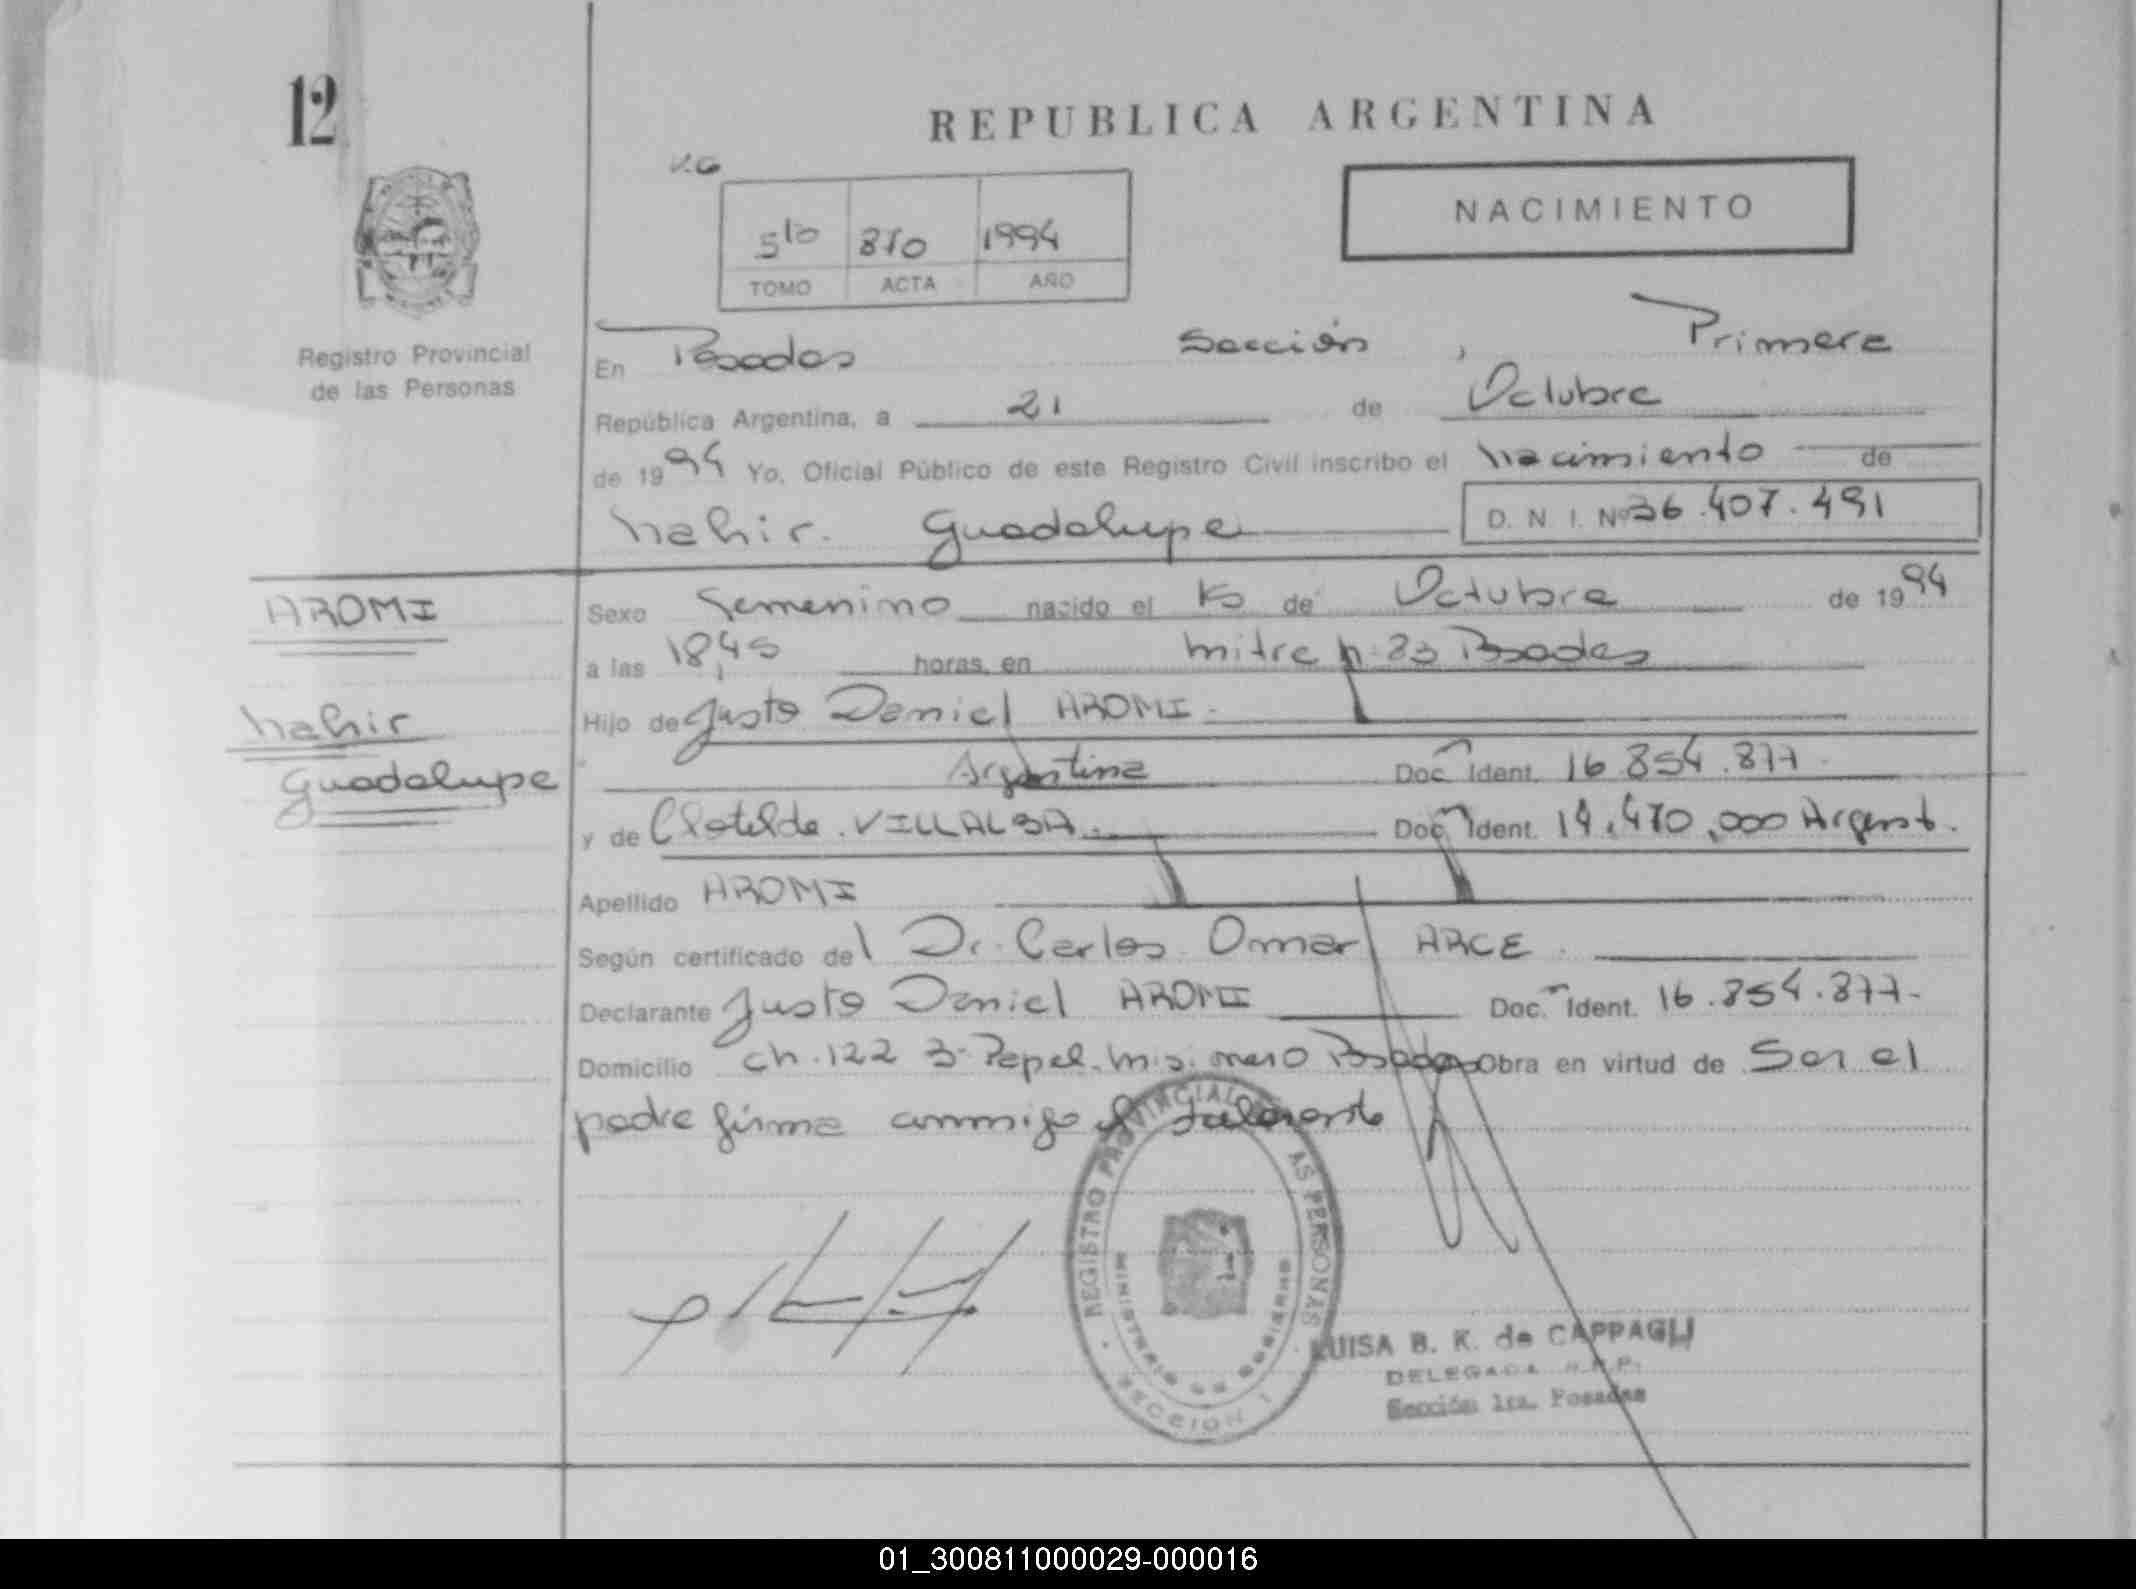 12
REPUBLICA ARGENTINA
V.G
NACIMIENTO
5to 810 1994
TOMO ACTA AÑO
Registro Provincial
de las Personas
En Posadas Sección , Primera
República Argentina, a 21 de Octubre
de 1994 Yo, Oficial Público de este Registro Civil inscribo el nacimiento de
Nahir. Guadalupe D. N. I. Nº 36.407.491
AROMI
Sexo femenino nacido el de Octubre de 1994
a las 18,45 horas, en mitre n. 83 Posadas
Nahir
Guadalupe
Hijo de Justo Daniel AROMI.
Argentina Doc. Ident. 16.854.877.
y de Clotilde. VILLALBA. Doc. Ident. 14.470.000 Argent.
Apellido AROMI
Según certificado del Dr. Carlos Omar ARCE.
Declarante Justo Daniel AROMI Doc. Ident. 16.854.877.
Domicilio ch. 122 3. Papel. misionero Posadas Obra en virtud de Ser el
padre firma conmigo
REGISTRO PROVINCIAL AS PERSONAS
MINISTERIO DE GOBIERNO
SECCION 1
LUISA B. K. de CAPPAGLI
DELEGADA R.P.P.
Sección 1ra. Posadas
01_300811000029-000016